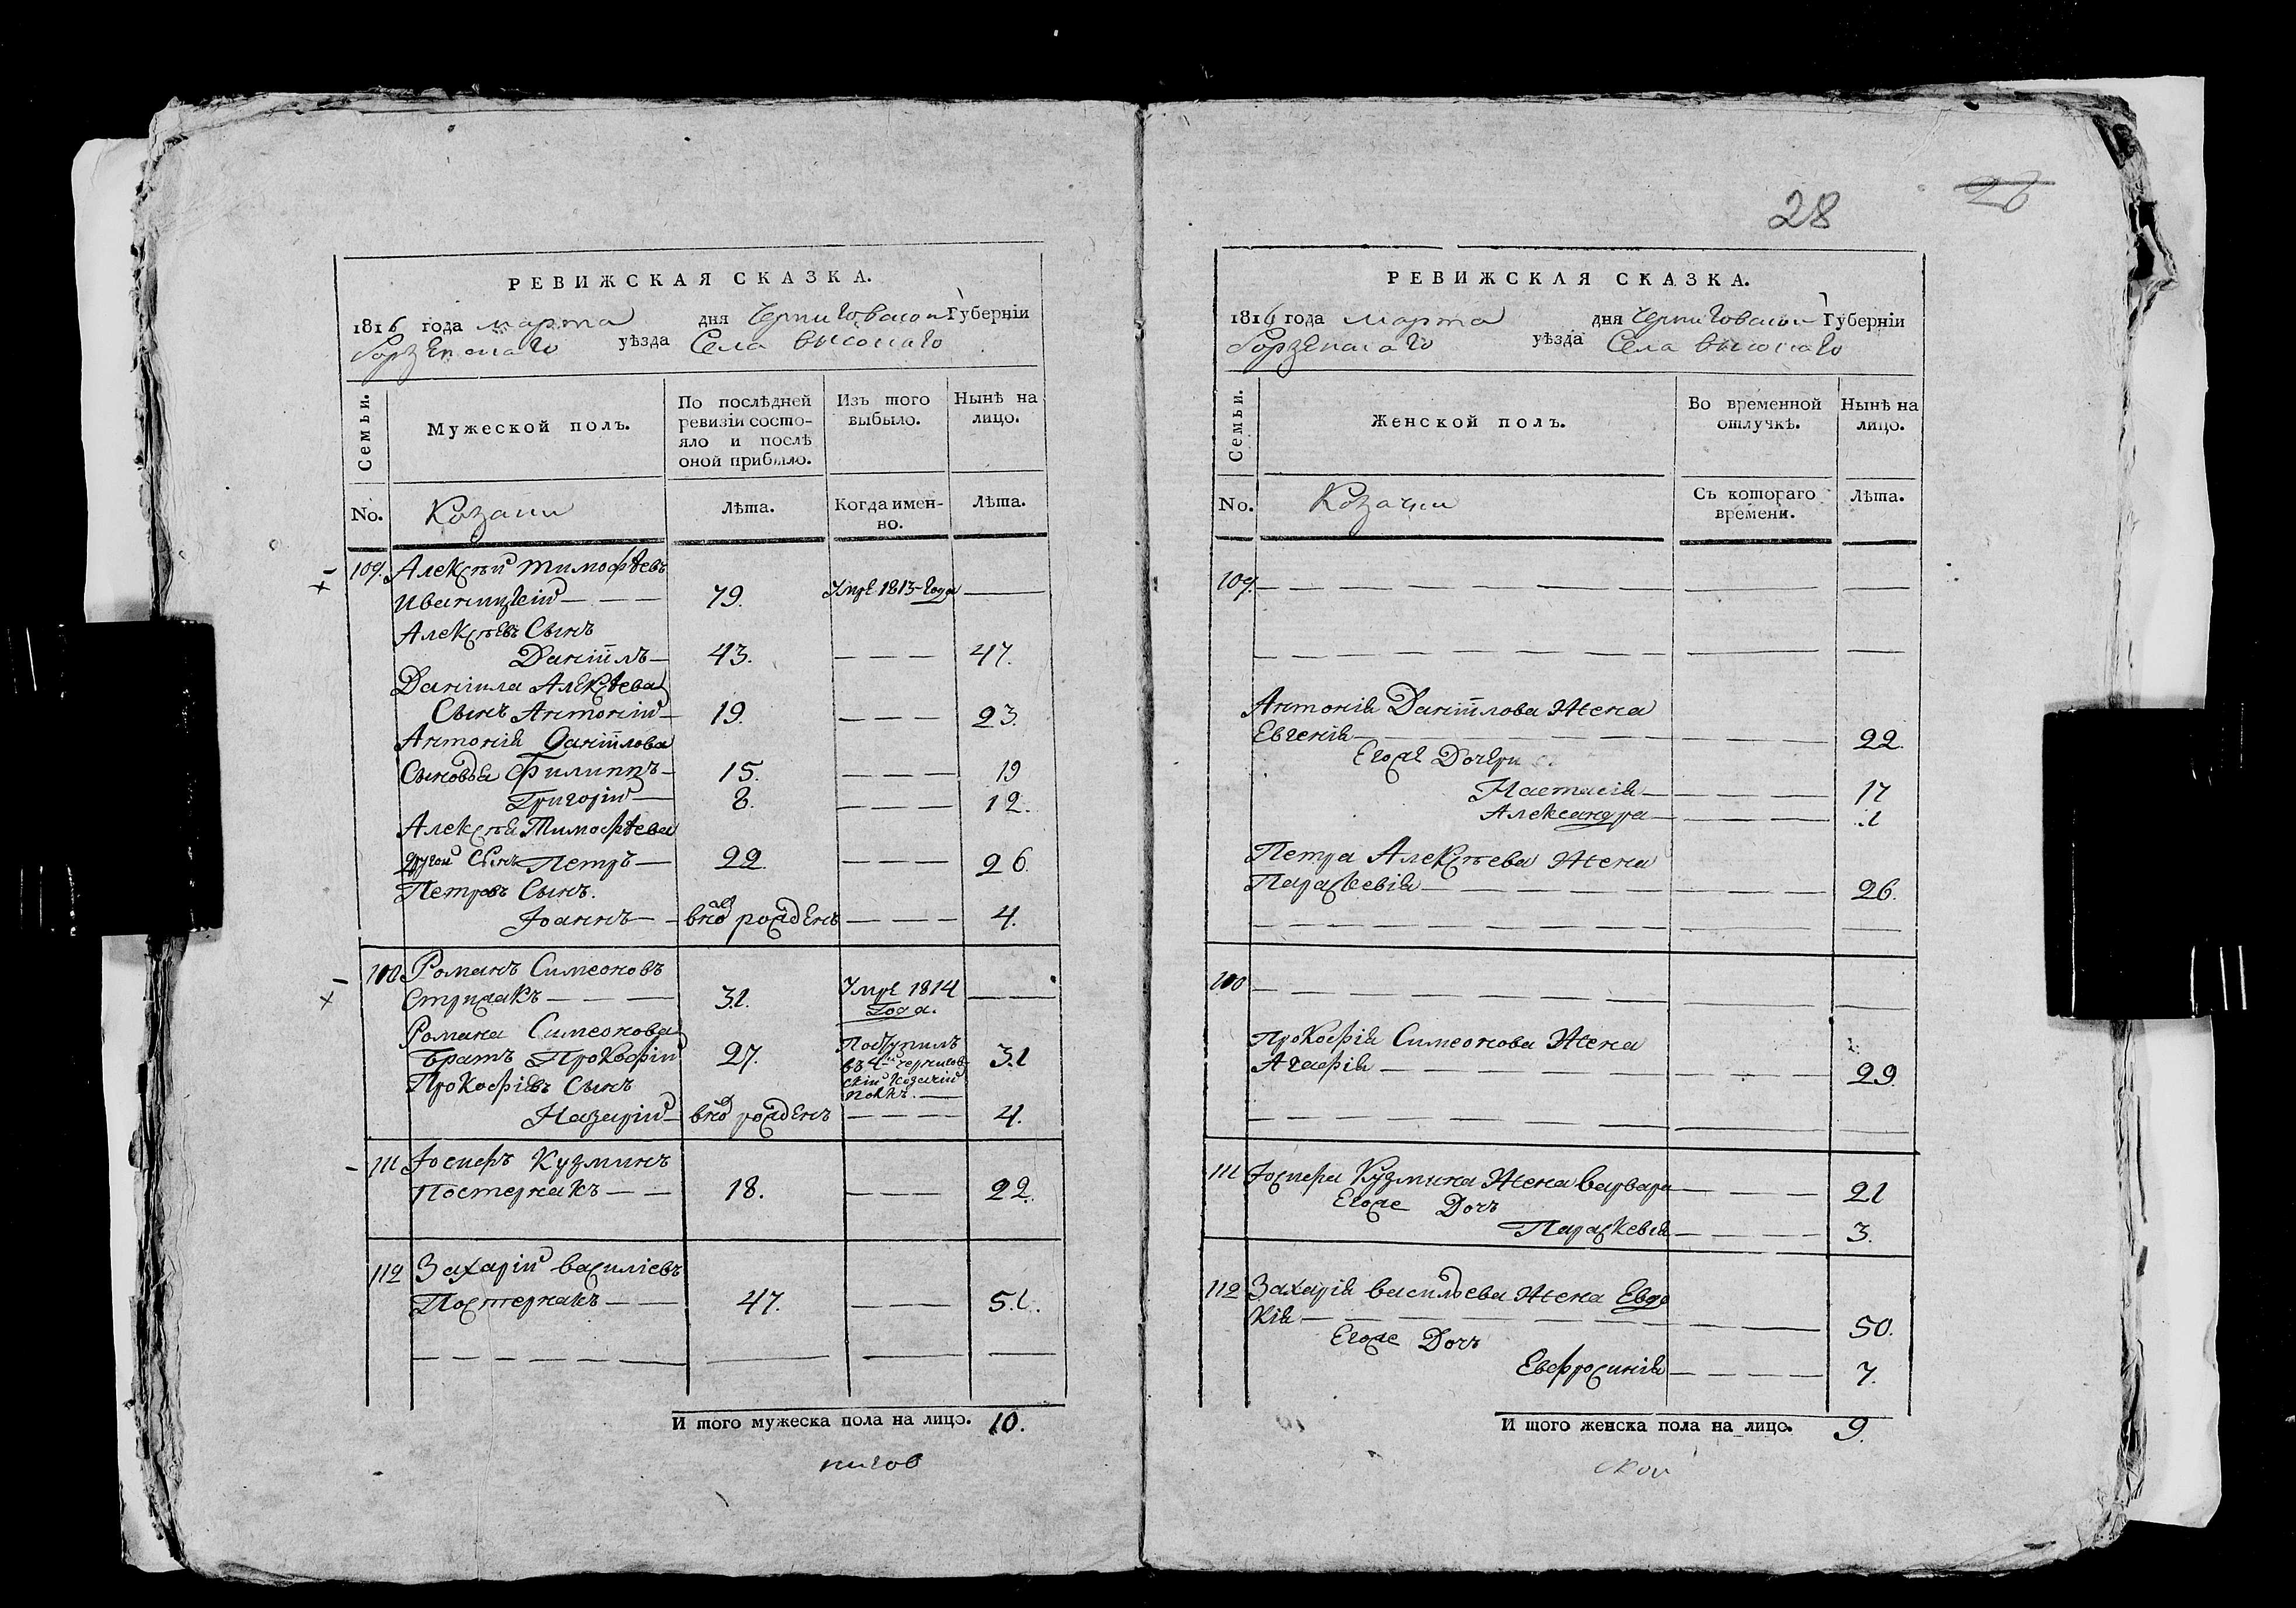 РЕВИЖСКАЯ СКАЗКА.
1816 года марта дня Черниговской Губерніи
Борзенскаго уѣзда Села Высокаго
Семьи.
Мужеской полъ.
По послѣдней ревизіи состояло и послѣ оной прибыло.
Изъ того выбыло.
Нынѣ на лицо.
No.
Козаки
Лѣта.
Когда именно.
Лѣта.
109. Алексѣй Тимофѣевъ
Иваницкій 79. Умре 1813 года
Алексѣевъ Сынъ
Даніилъ 43. 47.
Даніила Алексѣева
Сынъ Антоній 19. 23.
Антонія Даніилова
Филиппъ 15. 19
Григорій 8. 12.
Алексѣя Тимофѣева
другой Сынъ Петръ 22 26.
Петровъ Сынъ.
Іоаннъ рожденъ 4.
110 Романъ Симеоновъ
Стрижакъ 31. Умре 1814 Года.
Романа Симеонова
Братъ Прокофій 27. Поступилъ въ 4й Черниговскій Козачій полкъ. 31
Прокофіевъ Сынъ
Назарій рожденъ 4.
111 Іосифъ Кузминъ
Постернакъ 18. 22.
112 Захарій Василіевъ
Постернакъ 47. 51.
И того мужеска пола на лицо. 10.
нигов
28
28
РЕВИЖСКАЯ СКАЗКА.
1816 года марта дня Черниговской Губерніи
Борзенскаго уѣзда Села Высокаго
Семьи.
Женской полъ.
Во временной отлучкѣ.
Нынѣ на лицо.
No.
Козачки
Съ котораго времени.
Лѣта.
109.
Антонія Даніилова Жена
Евгенія 22.
Егоже Дочери
Настасія 17
Александра 1
Петра Алексѣева Жена
Параскевія 26.
110
Прокофія Симеонова Жена
Агафія 29.
111 Іосифа Кузмина Жена Варвара 21
Егоже Дочъ
Параскевія 3.
112 Захарія Васильева Жена Евдо
кія 50.
Егоже Дочъ
Евфросинія 7.
И того женска пола на лицо. 9.
ской